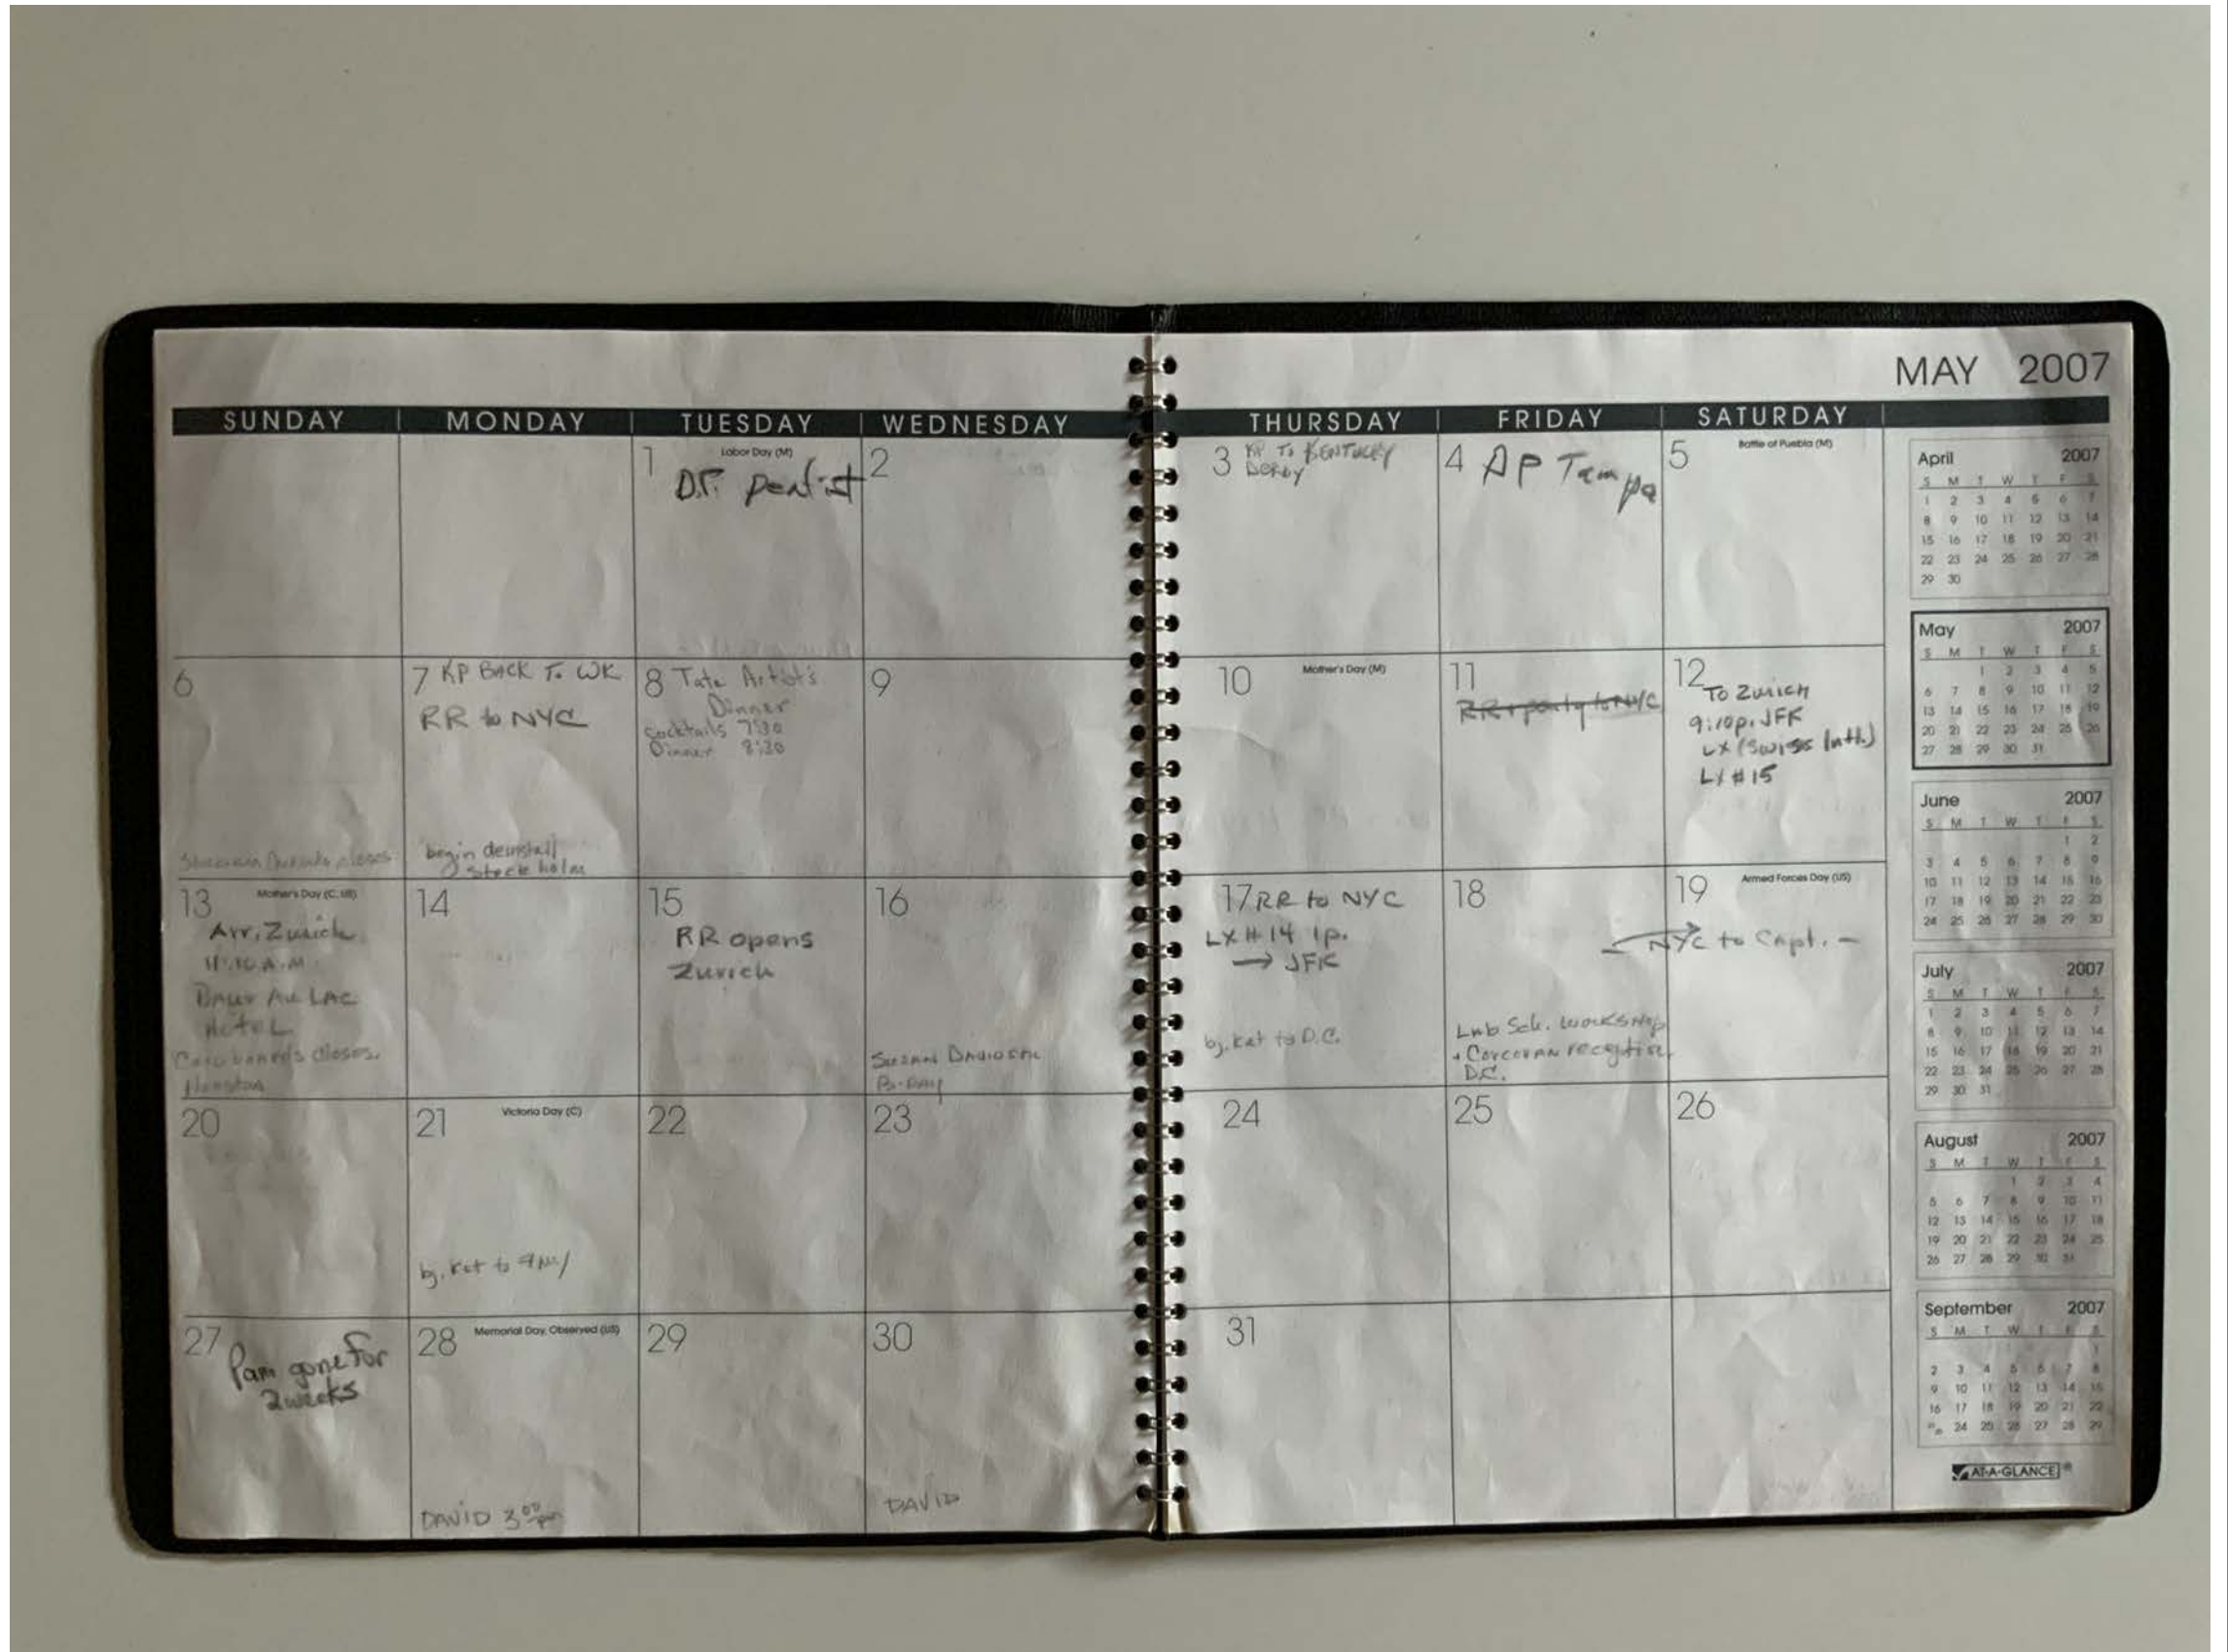 MAY 2007
SUNDAY MONDAY TUESDAY WEDNESDAY THURSDAY FRIDAY SATURDAY
1 Labor Day (M)
D.P. Dentist
2
3 KP TO KENTUCKY
DERBY
4 AP Tampa
5 Battle of Puebla (M)
6
closes
7 KP BACK TO WK
RR to NYC
begin deinstall
Stockholm
8 Tate Artist's
Dinner
Cocktails 7:30
Dinner 8:30
9
10 Mother's Day (M)
11
RR + party to NYC
12
To Zurich
9:10p. JFK
LX (Swiss Intl.)
LX #15
13 Mother's Day (C, US)
Arr. Zurich
11:10 A.M.
BAUR AU LAC
HOTEL
Cardboards closes.
Houston
14
15
RR opens
Zurich
16
SUSAN
B-DAY
17 RR to NYC
LX # 14 1p.
→ JFK
bj. Kat to D.C.
18
Lab Sch. Workshop
+ CORCORAN reception
D.C.
19 Armed Forces Day (US)
NYC to Capt. –
20
21 Victoria Day (C)
bj. Kat to
22
23
24
25
26
27
Pam gone for
2 weeks
28 Memorial Day, Observed (US)
DAVID 3:00 pm
29
30
DAVID
31
April 2007
S M T W T F S
1 2 3 4 5 6 7
8 9 10 11 12 13 14
15 16 17 18 19 20 21
22 23 24 25 26 27 28
29 30
May 2007
S M T W T F S
1 2 3 4 5
6 7 8 9 10 11 12
13 14 15 16 17 18 19
20 21 22 23 24 25 26
27 28 29 30 31
June 2007
S M T W T F S
1 2
3 4 5 6 7 8 9
10 11 12 13 14 15 16
17 18 19 20 21 22 23
24 25 26 27 28 29 30
July 2007
S M T W T F S
1 2 3 4 5 6 7
8 9 10 11 12 13 14
15 16 17 18 19 20 21
22 23 24 25 26 27 28
29 30 31
August 2007
S M T W T F S
1 2 3 4
5 6 7 8 9 10 11
12 13 14 15 16 17 18
19 20 21 22 23 24 25
26 27 28 29 30 31
September 2007
S M T W T F S
1
2 3 4 5 6 7 8
9 10 11 12 13 14 15
16 17 18 19 20 21 22
24 25 26 27 28 29
AT-A-GLANCE®